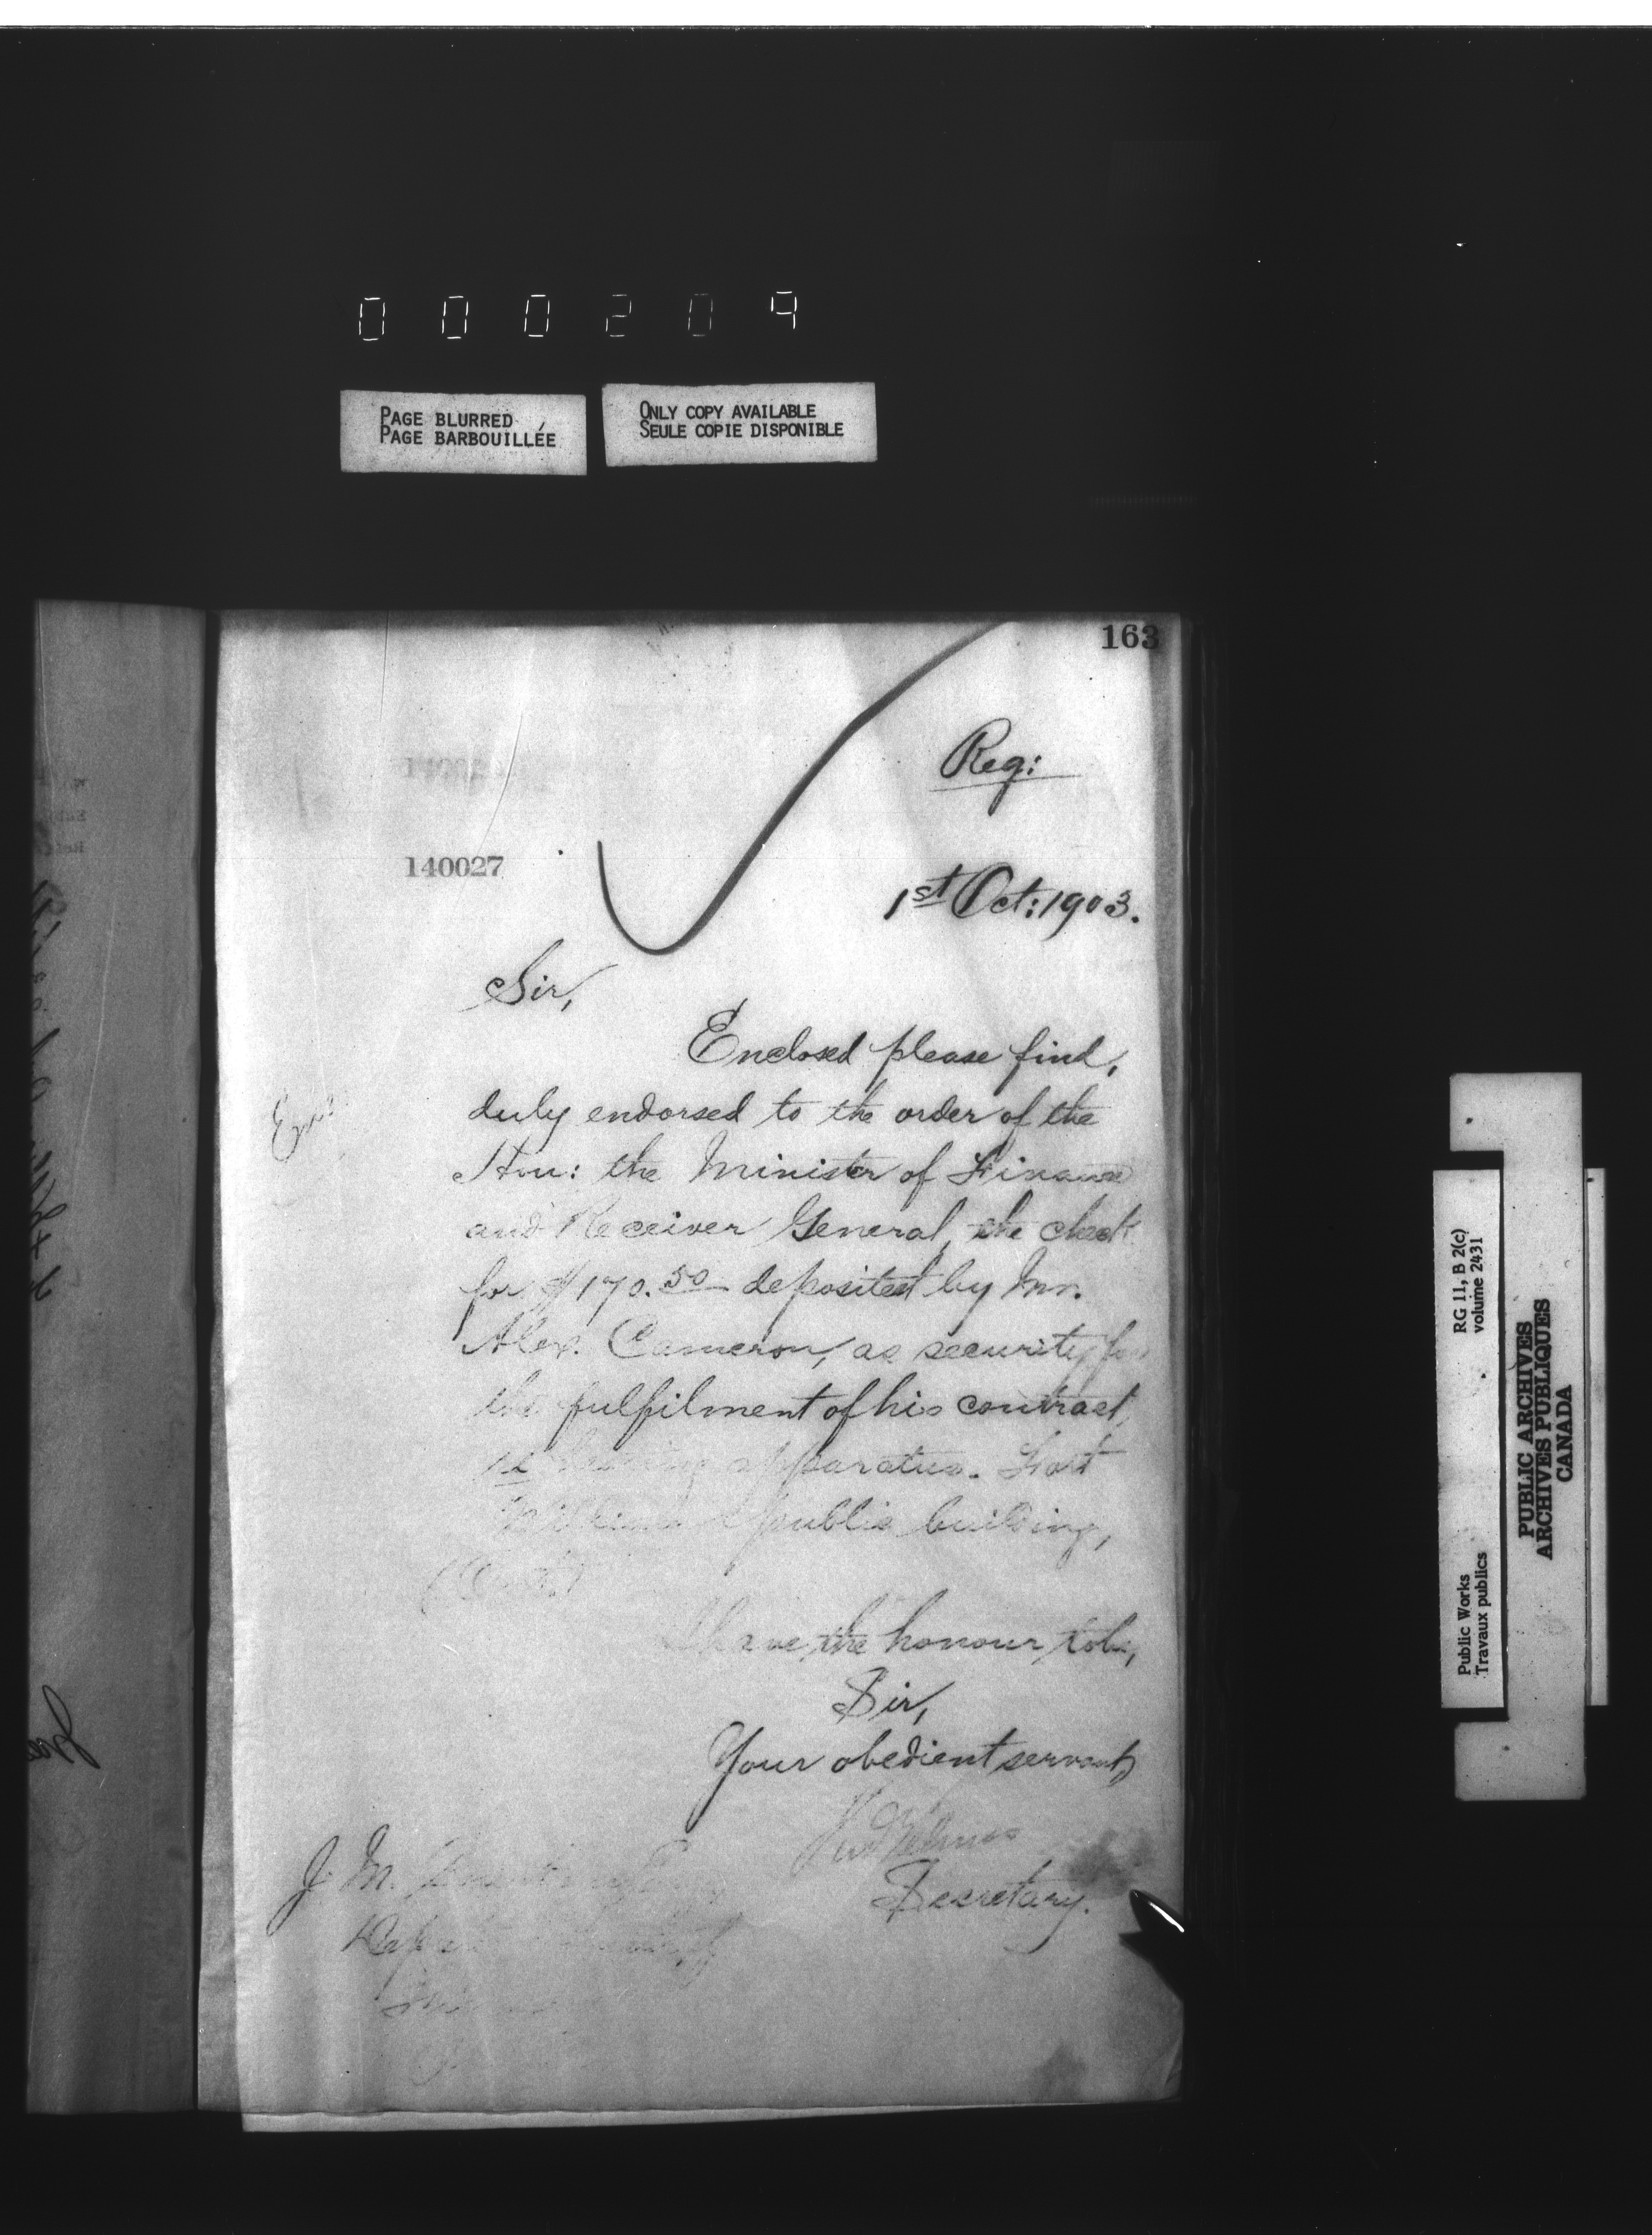 000209
PAGE BLURRED
PAGE BARBOUILLÉE
ONLY COPY AVAILABLE
SEULE COPIE DISPONIBLE
163
Reg:
140027
1st Oct: 1903.
Sir,
Enclosed please find,
duly endorsed to the order of the
Hon: the Minister of Finance
and Receiver General, the check
for $170.50 deposited by Mr.
Alex. Cameron, as security for
the fulfilment of his contract,
re heating apparatus. Fort
William public building,
(Ont.)
I have the honour to be,
Sir,
Your obedient servant,
Secretary.
J. M.
RG 11, B 2(c)
volume 2431
Public Works
Travaux publics
PUBLIC ARCHIVES
ARCHIVES PUBLIQUES
CANADA